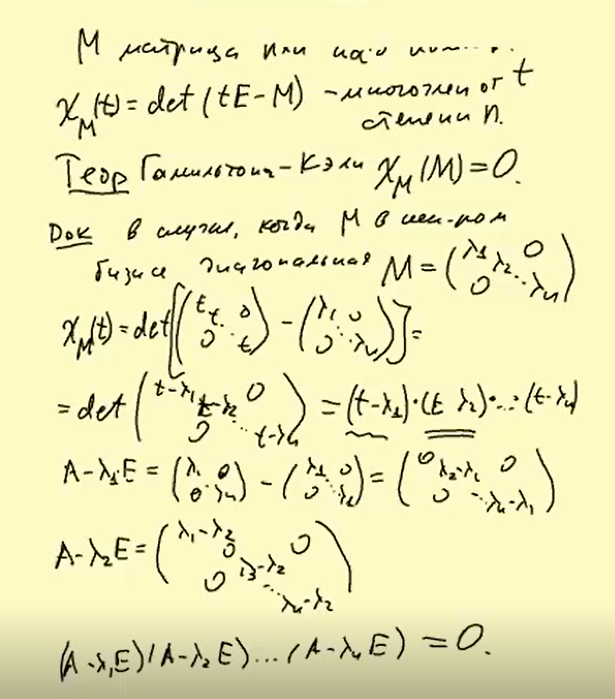 M матрица или
χ_M(t) = det(tE - M) - многочлен от t
степени n.
Теор Гамильтона-Кэли χ_M(M) = 0.
Док в случае, когда M в нек-ром
базисе диагональная M = (λ1 λ2 0 0 ... λn)
χ_M(t) = det[(t t 0 0 ... t) - (λ1 0 0 ... λn)] =
= det(t-λ1 t-λ2 0 0 ... t-λn) = (t-λ1)·(t λ2)·...·(t-λn)
A-λ1E = (λ1 0 0 ... λn) - (λ1 0 0 ... λ1) = (0 λ2-λ1 0 0 ... λn-λ1)
A-λ2E = (λ1-λ2 0 0 λ3-λ2 0 ... λn-λ2)
(A-λ1E)(A-λ2E)...(A-λnE) = 0.